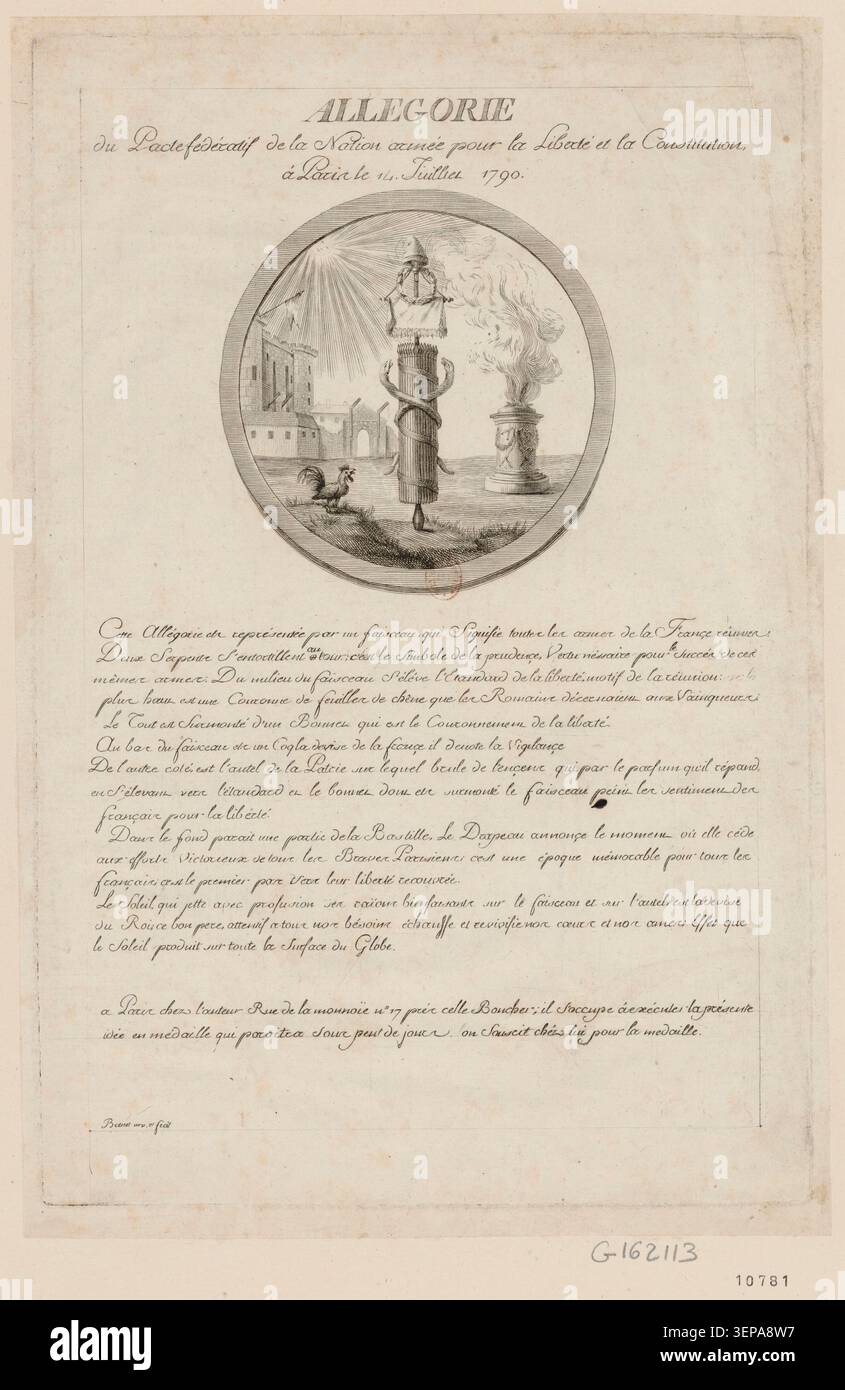 ALLEGORIE
du Pacte fédératif de la Nation armée pour la Liberté et la Constitution,
à Paris le 14. Juillet 1790.
Cette Allégorie est représentée par un faisceau qui Signifie toutes les armes de la France réunies
Deux Serpents S'entortillent au tour, c'est le Simbole de la prudence, Vertu néssaire pour le Succès de ces
mêmes armes. Du milieu du faisceau S'élève l'Etandard de la liberté motif de la réunion:
plus haut est une Couronne de feuilles de chêne que les Romains décernaient aux Vainqueurs
Le Tout est Surmonté d'un Bonnet qui est le Couronnement de la liberté.
Au bas du faisceau est un Coq la devise de la france il denote la Vigilance
De l'autre coté est l'autel de la Patrie sur lequel brule de l'encens qui par le parfum qu'il répand,
en S'élevant vers l'étandard et le bonnet dont est surmonté le faisceau peint les sentiments des
français pour la liberté.
Dans le fond parait une partie de la Bastille, Le Drapeau annonce le moment où elle céde
aux efforts Victorieux de tous les Braves Parisiens c'est une époque mémorable pour tous les
français, c'est le premier pas vers leur liberté recouvrée.
Le Soleil qui jette avec profusion ses raïons bienfaisants sur le faisceau et sur l'autel est la devise
du Roi, ce bon pere, attentif a tous nos bésoins échauffe et revivifie nos cœurs et nos ames Effet que
le Soleil produit sur toute la Surface du Globe.
a Paris chez l'auteur Rue de la monnoïe n° 17 près celle Boucher; il s'occupe à exécuter la présente
idée en medaille qui paroitra sous peut de jours. on Souscrit chés lui pour la medaille.
inv. et fecit
G-162113
10781
alamy
Image ID: 3EPA8W7
www.alamy.com